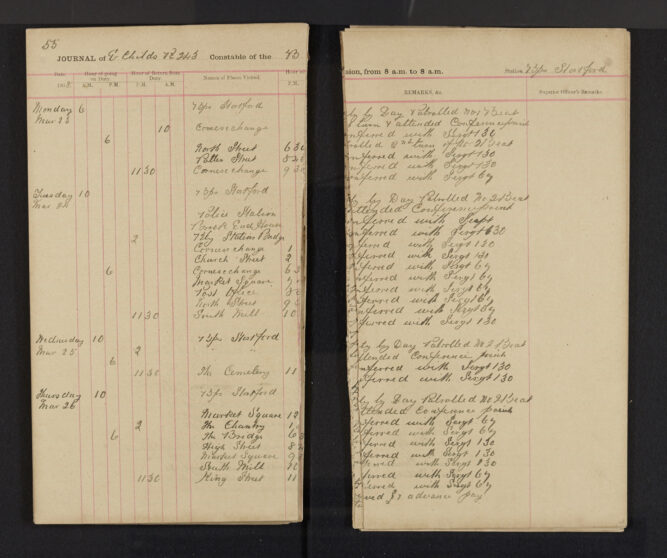 55
JOURNAL of E Childs PC 243 Constable of the
Date. Hour of going on Duty. Hour of Return from Duty. Names of Places Visited. Hour of
A.M. P.M. A.M. P.M. P.M.
Monday 6 Stortford
Mar 23
10 Cornexchange
6
North Street 6 30
Potter Street
1130 Cornexchange 9 30
Tuesday 10 Stortford
Mar 24
Police Station
End House
2 Station Bridge
Cornexchange 1
Church Street 2
6 Cornexchange
Market Square
Post Office
North Street
1130 South Mill 10
Wednesday 10 Stortford
Mar 25 2 "
6
1130 The Cemetery 11
Thursday 10 Stortford
Mar 26
Market Square 12
2 The Chantry
6 The Bridge
High Street
Market Square
South Mill 10
1130 King Street 11
sion, from 8 a.m. to 8 a.m. Station Stortford
REMARKS, &c. Superior Officer's Remarks.
by Day Patrolled No 1 Beat
turn & attended Conference point
ferred with Sergt 130
rolled 2nd turn of No 2 Beat
ferred with Sergt 130
ferred with Sergt 130
ferred with Sergt 69
by Day Patrolled No 2 Beat
ttended Conference point
ferred with Supt
ferred with Sergt 130
ferred with Sergt 130
ferred with Sergt 131
ferred with Sergt 69
ferred with Sergt 69
ferred with Sergt 69
ferred with Sergt 69
ferred with Sergt 69
ferred with Sergt 130
by Day Patrolled No 2 Beat
ttended Conference point
ferred with Sergt 130
ferred with Sergt 130
by Day Patrolled No 2 Beat
ttended Conference point
ferred with Sergt 69
ferred with Sergt 69
ferred with Sergt 130
ferred with Sergt 130
ferred with Sergt 130
ferred with Sergt 69
ferred with Sergt 69
advance pay